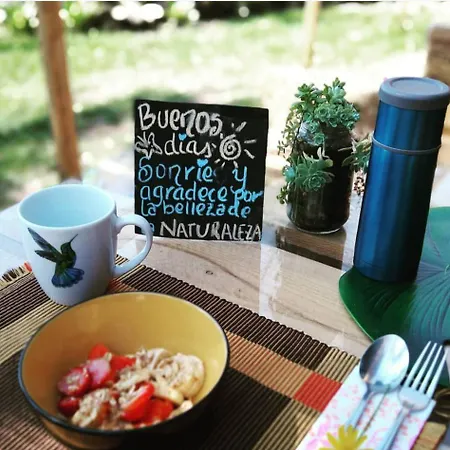 Buenos
días
Sonríe y
agradece por
la belleza de
la NATURALEZA